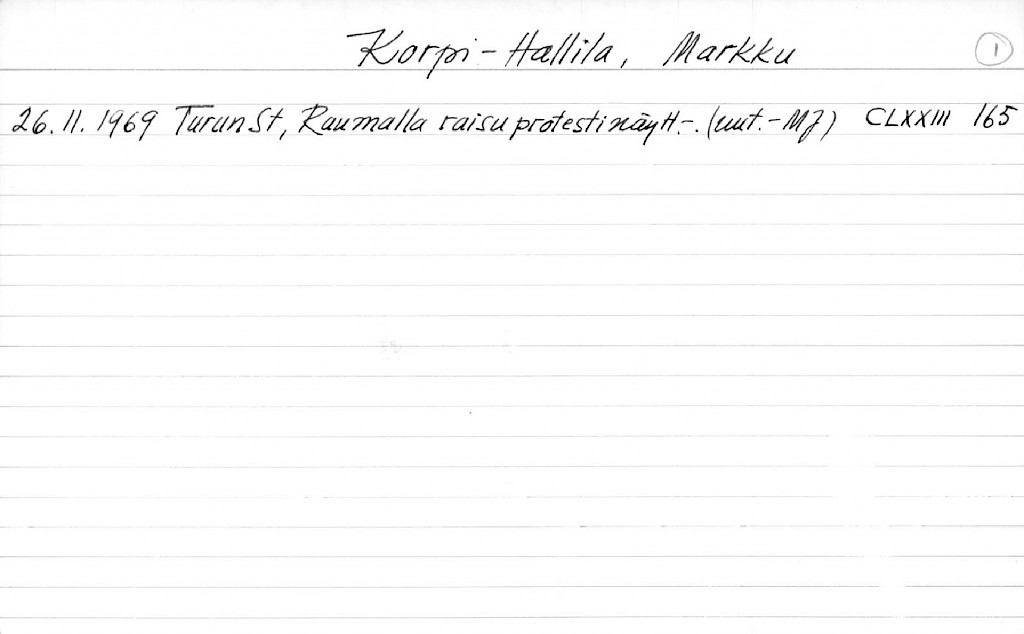 Korpi-Hallila, Markku 1
26.11.1969 Turun St, Raumalla raisu protestinäytt.-. (uut.-MJ) CLXXIII 165